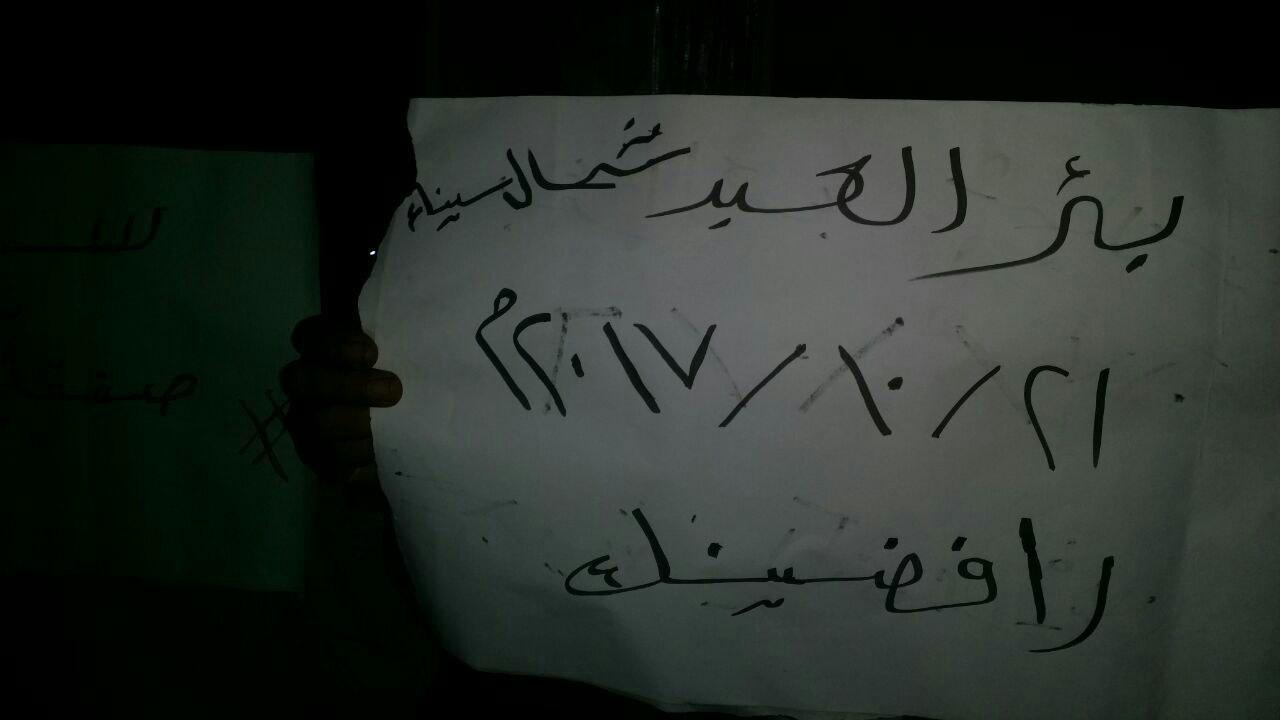 بئر العبد شمال سيناء
٢١/١٠/٢٠١٧م
رافضينك